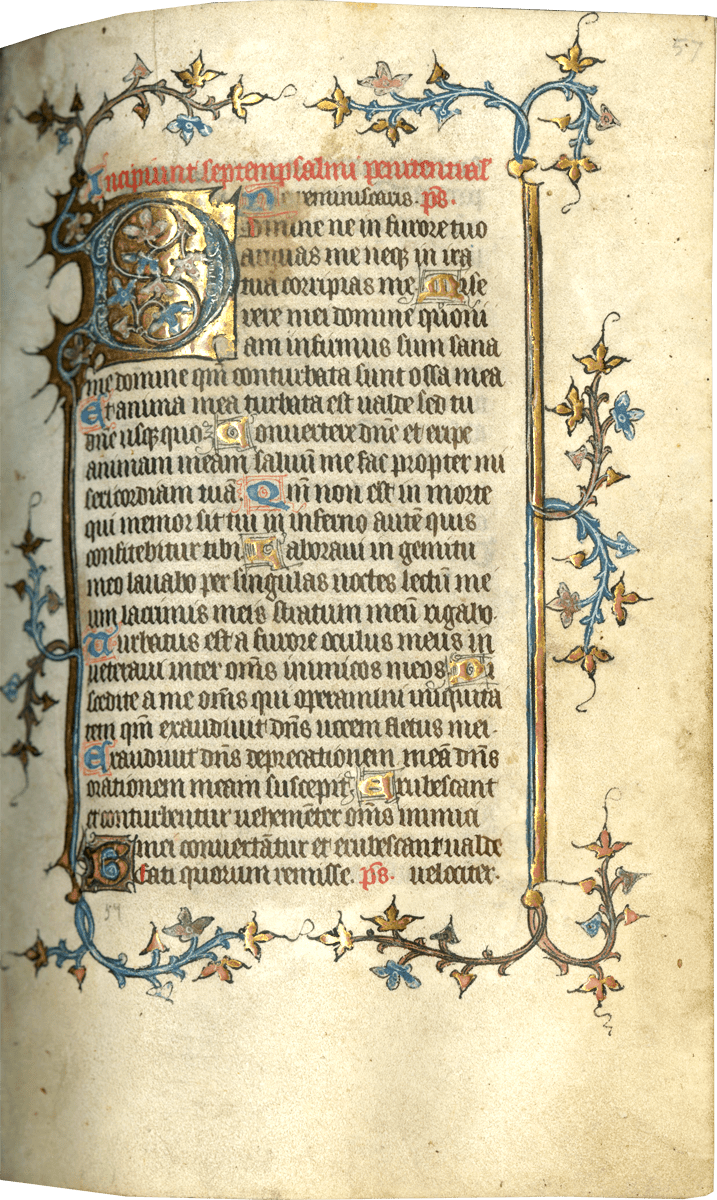 57
Incipiunt septem psalmi penitential
Ne reminiscaris. ps.
Domine ne in furore tuo
arguas me neq; in ira
tua corripias me Mise
rere mei domine quoni
am infirmus sum sana
me domine qm̄ conturbata sunt ossa mea
Et anima mea turbata est ualde sed tu
dn̄e usq; quo Conuertere dn̄e et eripe
animam meam saluū me fac propter mi
sericordiam tuā. Qm̄ non est in morte
qui memor sit tui in inferno autē quis
confitebitur tibi Laboraui in gemitu
meo lauabo per singulas noctes lectū me
um lacrimis meis stratum meū rigabo.
Turbatus est a furore oculus meus in
ueteraui inter om̄s inimicos meos Di
scedite a me om̄s qui operamini iniquita
tem qm̄ exaudiuit dn̄s uocem fletus mei.
Exaudiuit dn̄s deprecationem meā dn̄s
orationem meam suscepit Erubescant
et conturbentur uehemēter om̄s inimici
mei conuertātur et erubescant ualde
Beati quorum remisse. ps. uelociter.